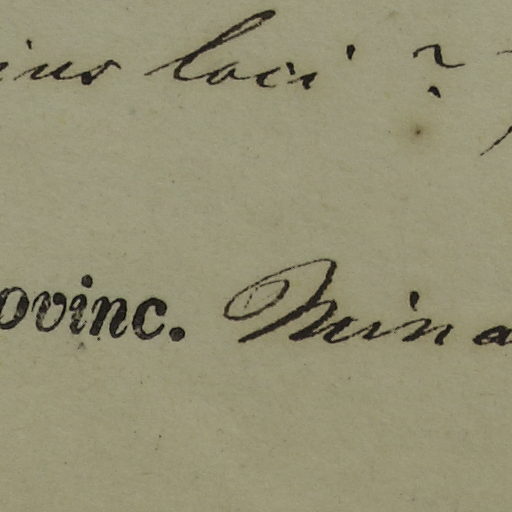 ius loci ?
ovinc. Mina